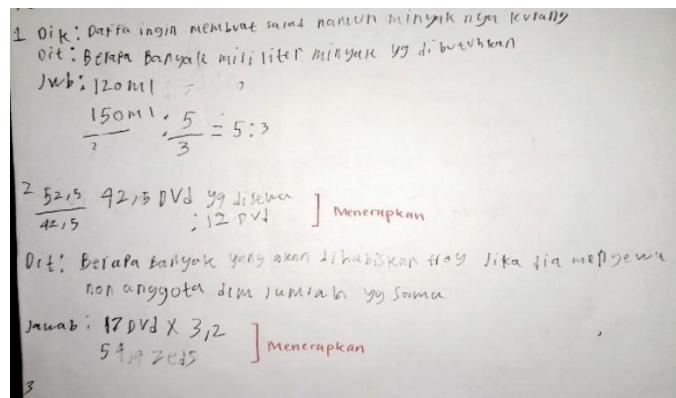 1 Dik: Daffa ingin membuat salad namun minyak nya kurang
Dit: Berapa Banyak mili liter minyak yg dibutuhkan
Jwb: 120 ml
150 ml : 5/3 = 5:3
2
2 52,5/42,5 42,5 DVd yg disewa
: 12 DVd
] Menerapkan
Dit: Berapa Banyak yang akan dihabiskan troy Jika dia menyewa
non anggota dlm jumlah yg sama
Jawab: 17 DVd X 3,2
54,4 zeds
] Menerapkan
3